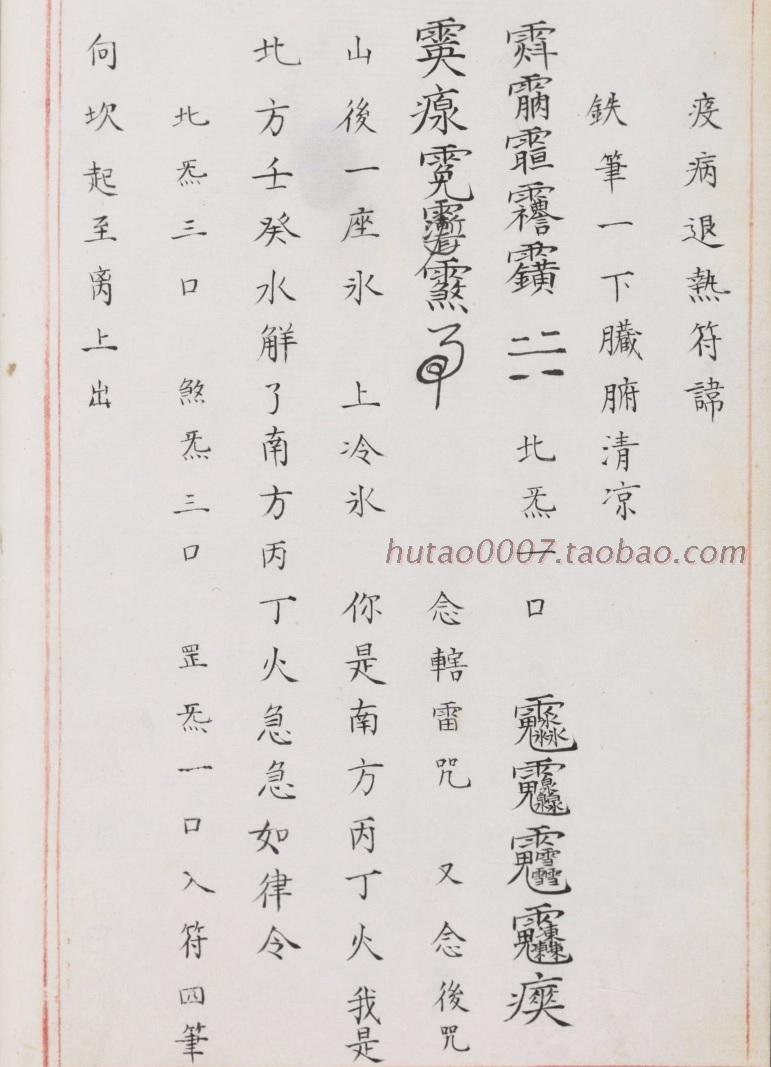 疫病退熱符諱
鉄筆一下臟腑清凉
北炁一口
念轄雷咒 又念後咒
山後一座氷 上冷氷 你是南方丙丁火我是
北方壬癸水解了南方丙丁火急急如律令
北炁三口 煞炁三口 罡炁一口入符四筆
向坎起至离上出
hutao0007.taobao.com